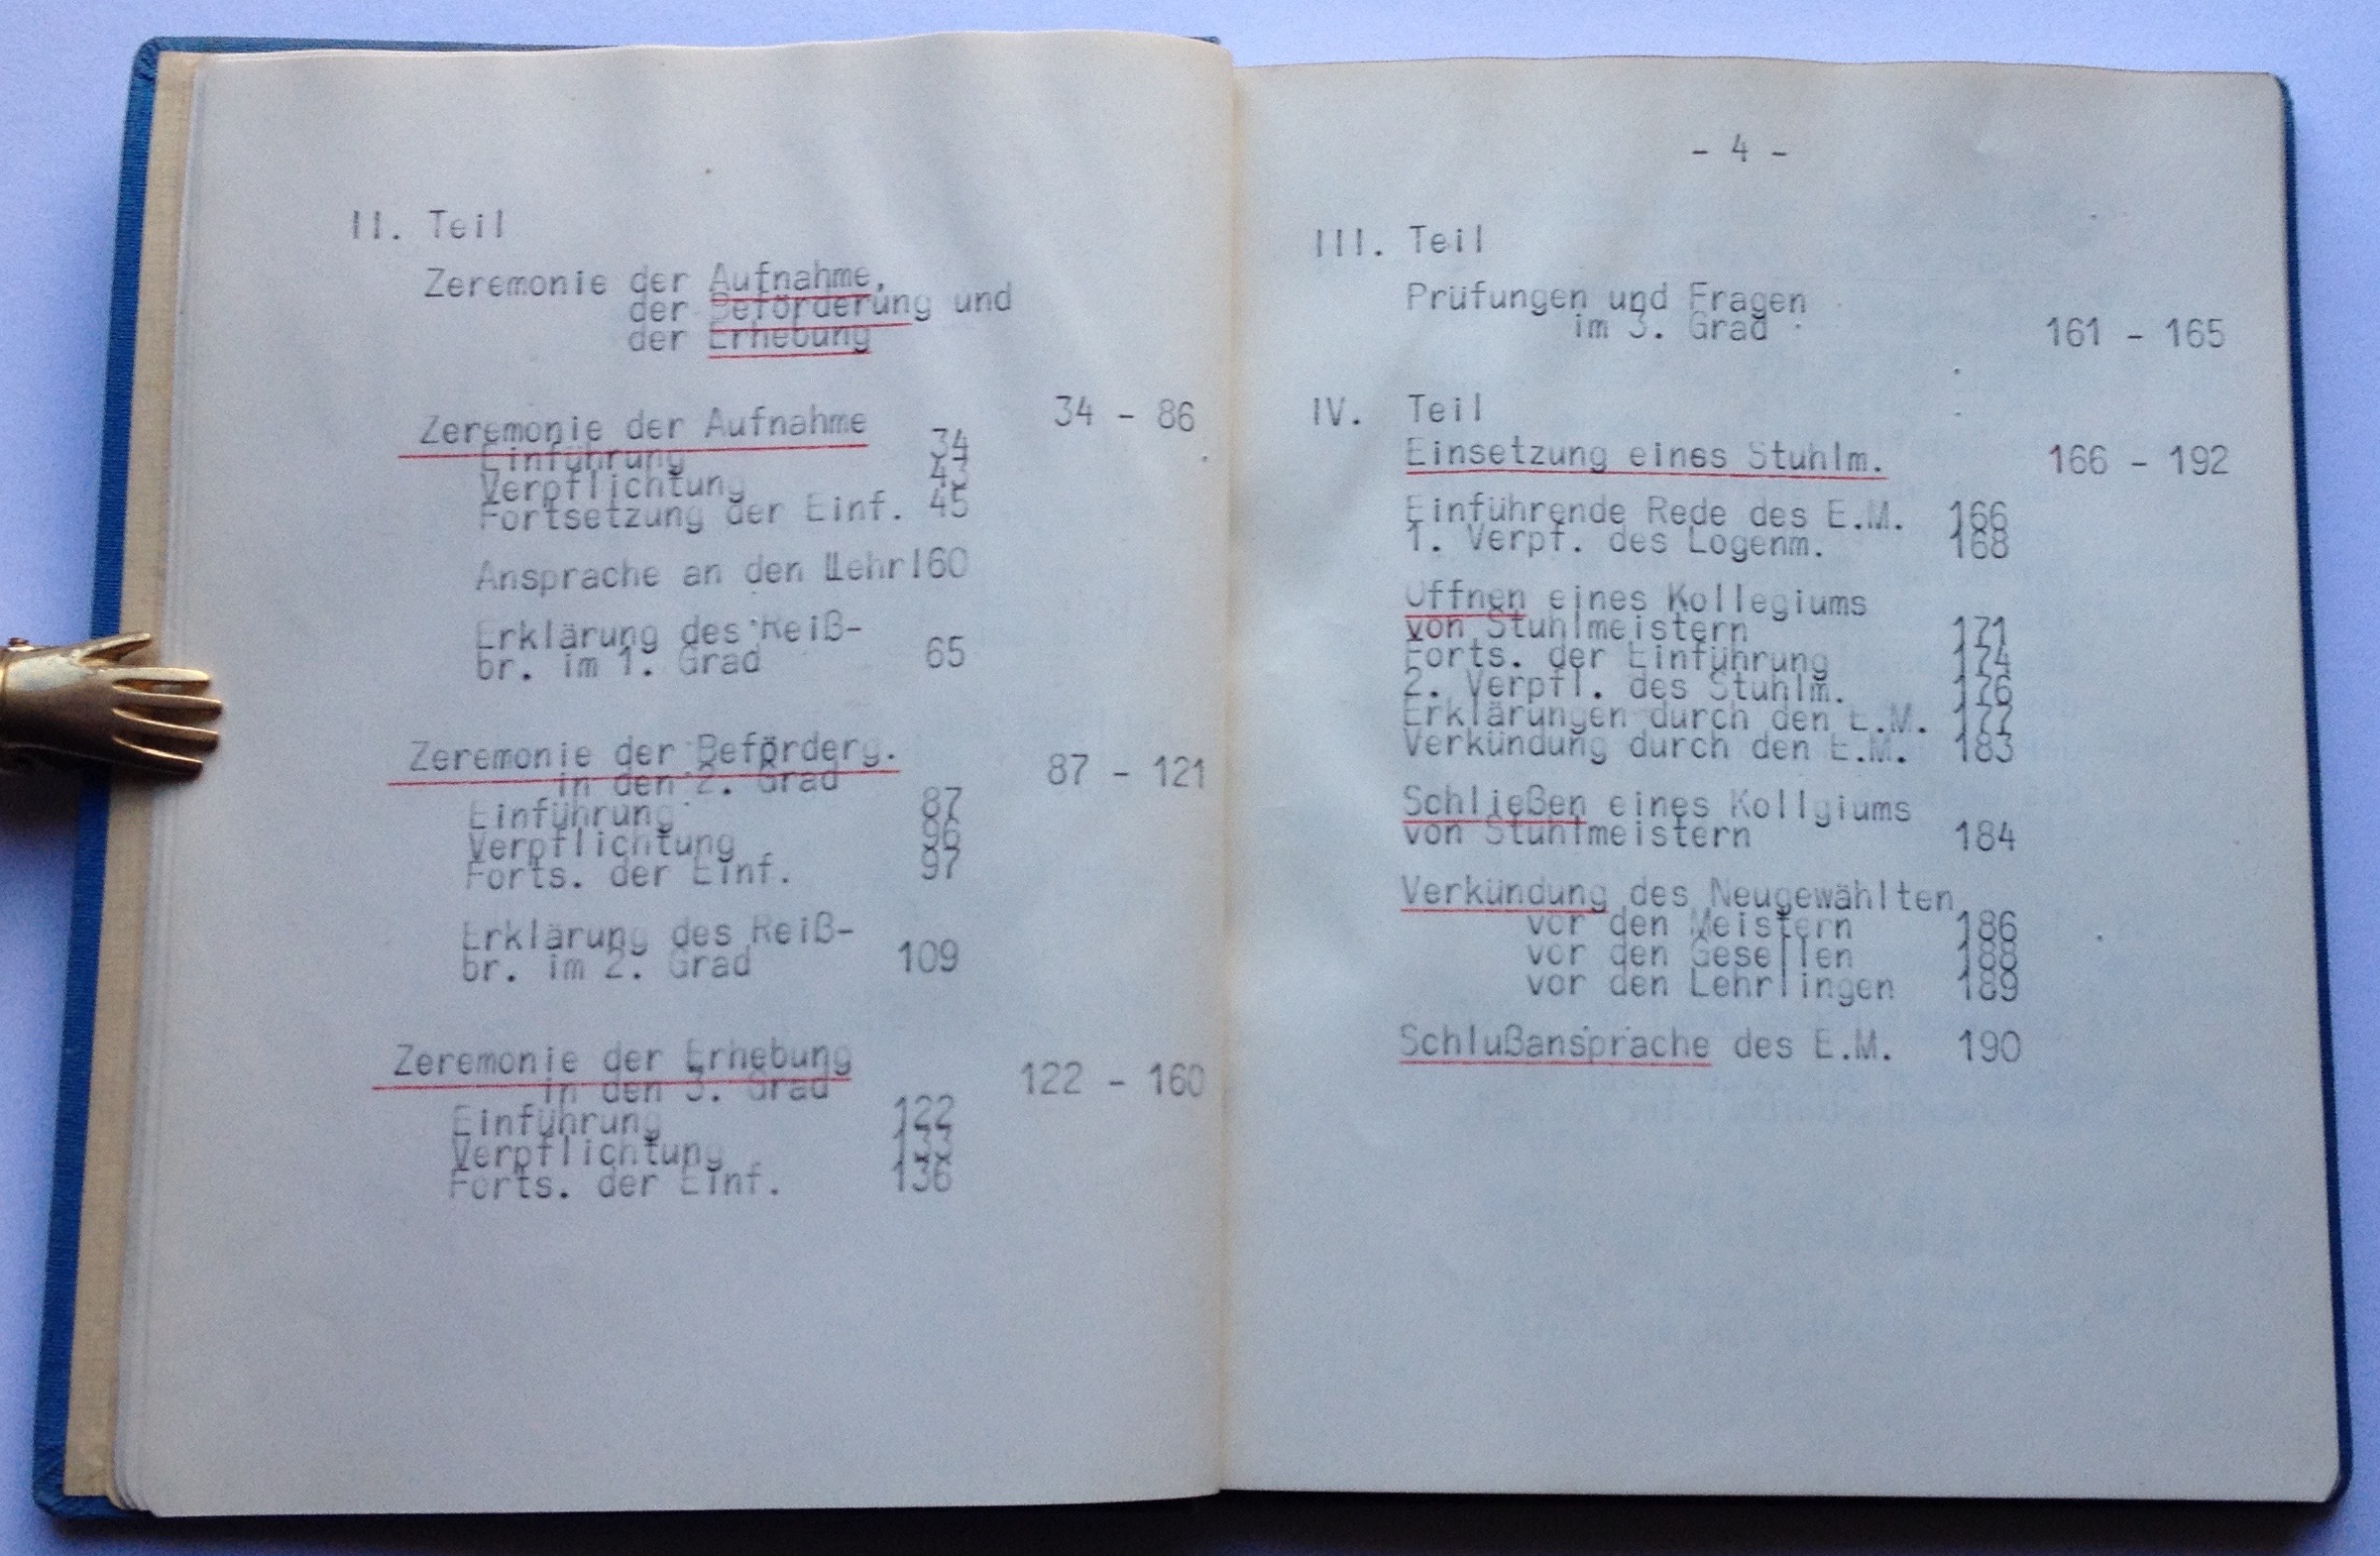 II. Teil
Zeremonie der Aufnahme,
der Beförderung und
der Erhebung
Zeremonie der Aufnahme 34 - 86
Einführung 34
Verpflichtung 43
Fortsetzung der Einf. 45
Ansprache an den Lehrl60
Erklärung des Reiß-
br. im 1. Grad 65
Zeremonie der Beförderg.
in den 2. Grad 87 - 121
Einführung 87
Verpflichtung 96
Forts. der Einf. 97
Erklärung des Reiß-
br. im 2. Grad 109
Zeremonie der Erhebung
in den 3. Grad 122 - 160
Einführung 122
Verpflichtung 133
Forts. der Einf. 136
- 4 -
III. Teil
Prüfungen und Fragen
im 3. Grad 161 - 165
IV. Teil
Einsetzung eines Stuhlm. 166 - 192
Einführende Rede des E.M. 166
1. Verpf. des Logenm. 168
Öffnen eines Kollegiums
von Stuhlmeistern 171
Forts. der Einführung 174
2. Verpfl. des Stuhlm. 176
Erklärungen durch den E.M. 177
Verkündung durch den E.M. 183
Schließen eines Kollgiums
von Stuhlmeistern 184
Verkündung des Neugewählten
vor den Meistern 186
vor den Gesellen 188
vor den Lehrlingen 189
Schlußansprache des E.M. 190